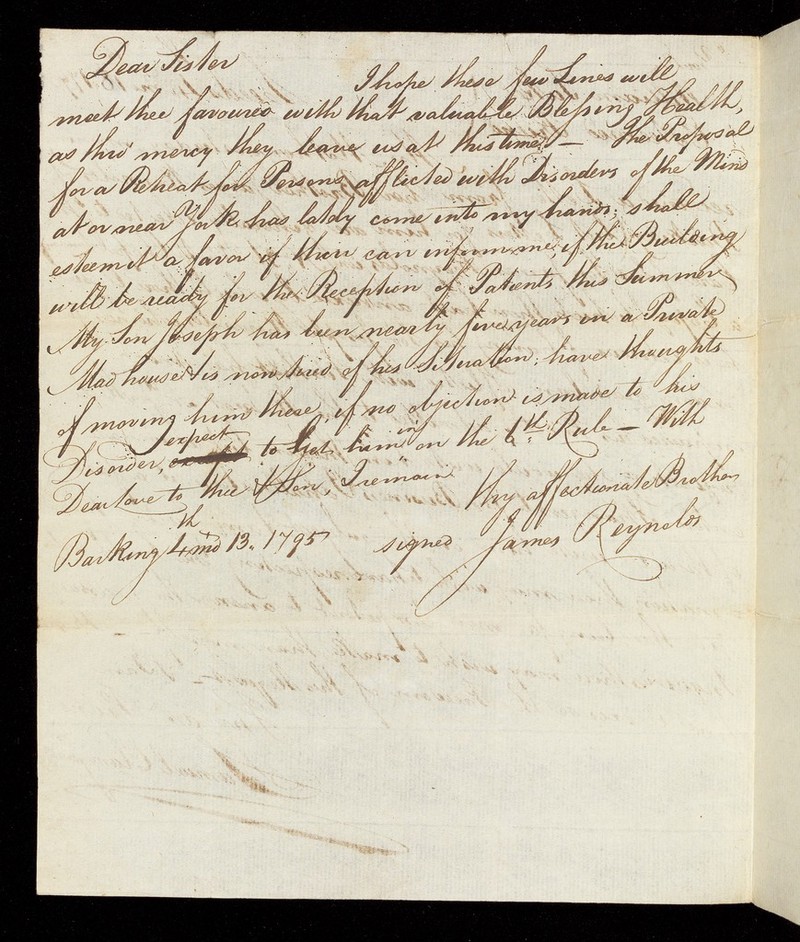 Dear Sister
I hope these few Lines will
meet thee favoured with that valuable Blessing Health,
as thro' mercy they leave us at this time. — The Proposal
for a Retreat for Persons afflicted with Disorders of the Mind
at or near York has lately come into my hands; shall
esteem it a favor if thou can inform me, if the Building
will be ready for the Reception of Patients this Summer
My Son Joseph has been nearly five years in a Private
Madhouse & is now tired of his Situation; have thoughts
of moving him there, if no objection is made to his
Disorder, expect to Get him in on the 6th Rule — With
Dear love to thee & Son, I remain
thy affectionate Brother
Barking 4th mo 13. 1795 signed James Reynolds